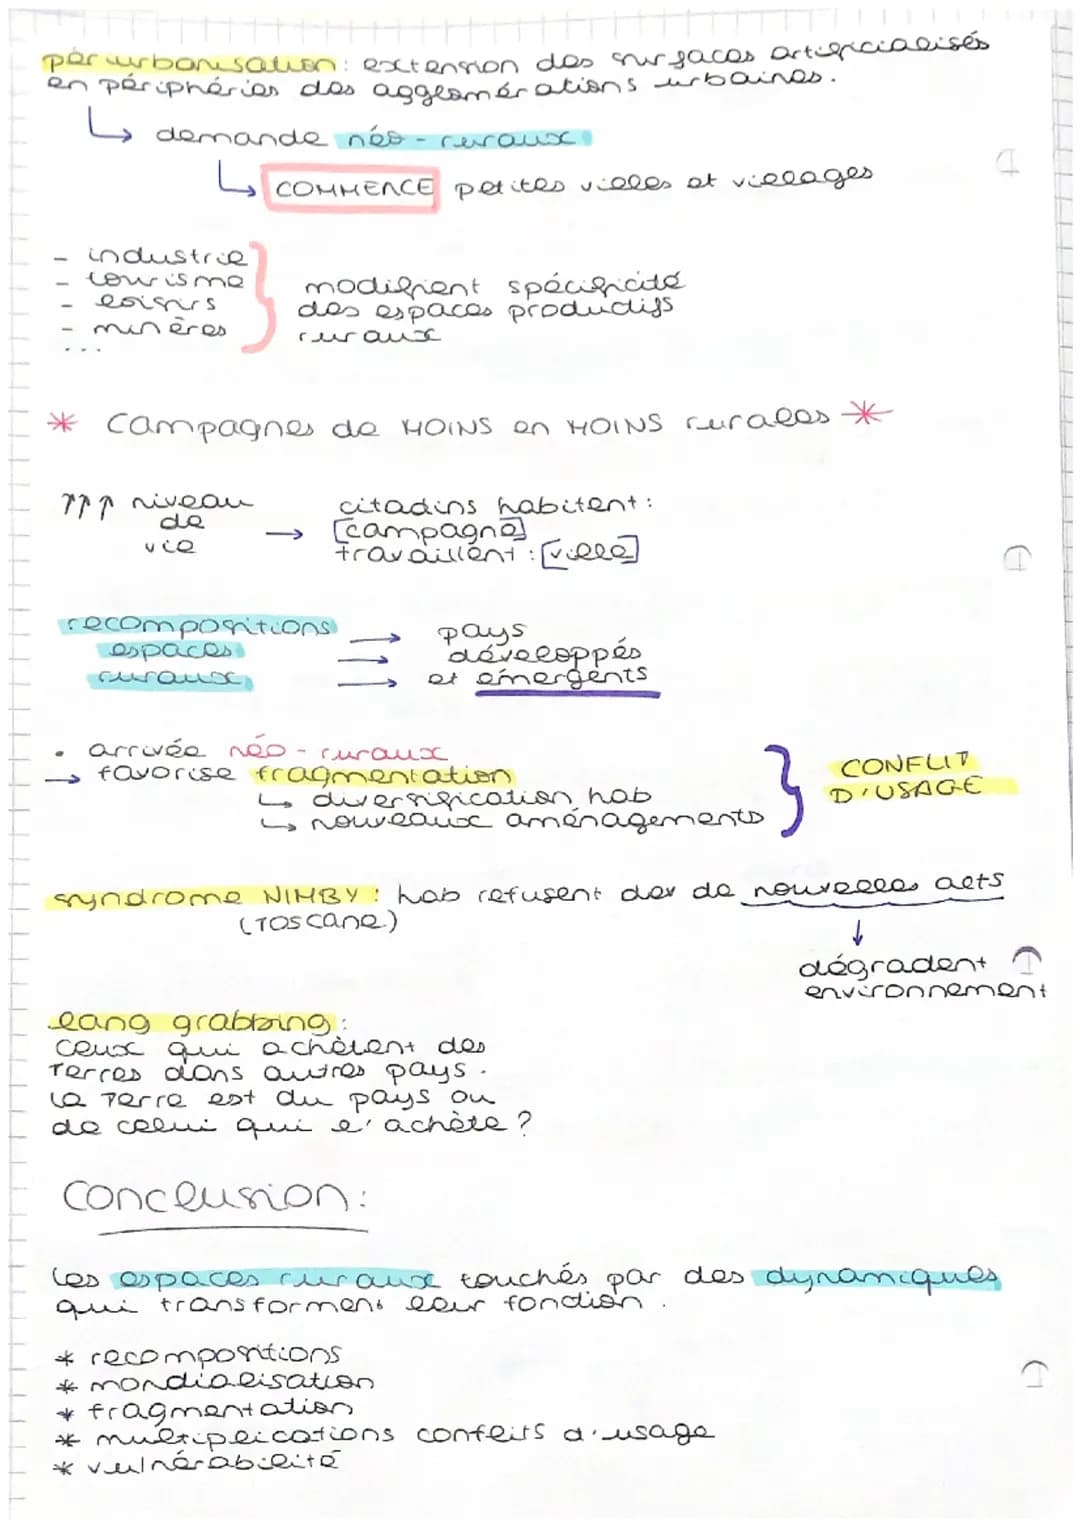 périurbanisation : extension des surfaces artificialisés
en périphéries des agglomérations urbaines.
↳ demande néo-ruraux
↳ COMMENCE petites villes et villages
- industrie
- tourisme
- loisirs
- minères
...
modifient spécificité
des espaces productifs
ruraux
* Campagnes de MOINS en MOINS rurales *
↑↑↑ niveau
de
vie
→ citadins habitent :
[campagne]
travaillent : [ville]
recompositions
espaces
ruraux
→ pays
→ développés
→ et émergents
• arrivée néo-ruraux
→ favorise fragmentation
↳ diversification hab
↳ nouveaux aménagements
CONFLIT
D'USAGE
syndrome NIMBY : hab refusent dev de nouvelles acts
(Toscane)
↓
dégradent
environnement
lang grabbing :
ceux qui achètent des
Terres dans autres pays.
la Terre est du pays ou
de celui qui l'achète ?
Conclusion :
Les espaces ruraux touchés par des dynamiques
qui transforment leur fonction.
* recompositions
* mondialisation
* fragmentation
* multiplications conflits d'usage
* vulnérabilité